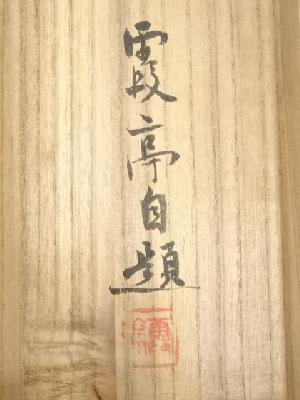 霞亭自題